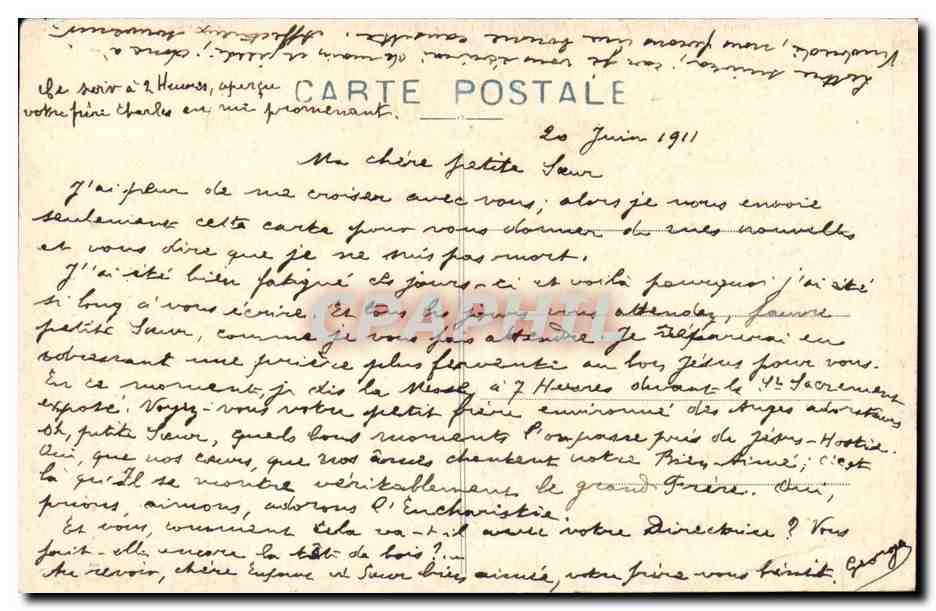 CARTE POSTALE
Ce soir à 2 Heures, aperçu
votre frère Charles en me promenant.
20 Juin 1911
Ma chère petite Sœur
J'ai peur de me croiser avec vous; alors je vous envoie
seulement cette carte pour vous donner de mes nouvelles
et vous dire que je ne suis pas mort.
J'ai été bien fatigué ces jours-ci et voilà pourquoi j'ai été
si long à vous écrire. Et tous les jours vous attendez, pauvre
petite Sœur, comme je vous fais attendre. Je réparerai en
adressant une prière plus fervente au bon Jésus pour vous.
En ce moment, je dis la Messe à 7 Heures devant le St Sacrement
exposé. Voyez-vous votre petit frère environné des Anges adorateurs
Oh, petite Sœur, quels bons moments l'on passe près de Jésus-Hostie.
Oui, que nos cœurs, que nos âmes chantent notre Bien-Aimé; c'est
là qu'Il se montre véritablement le grand Frère. Oui,
prions, aimons, adorons l'Eucharistie.
Et vous, comment cela va-t-il avec votre Directrice? Vous
fait-elle encore la tête de bois?...
Au revoir, chère Enfant et Sœur bien aimée, votre frère vous bénit. Georges
Lettre suivra; car je vous écrirai demain et jeudi; donc à
Vendredi, nous ferons une bonne causette. Affectueux souvenirs.
CPAPHIL